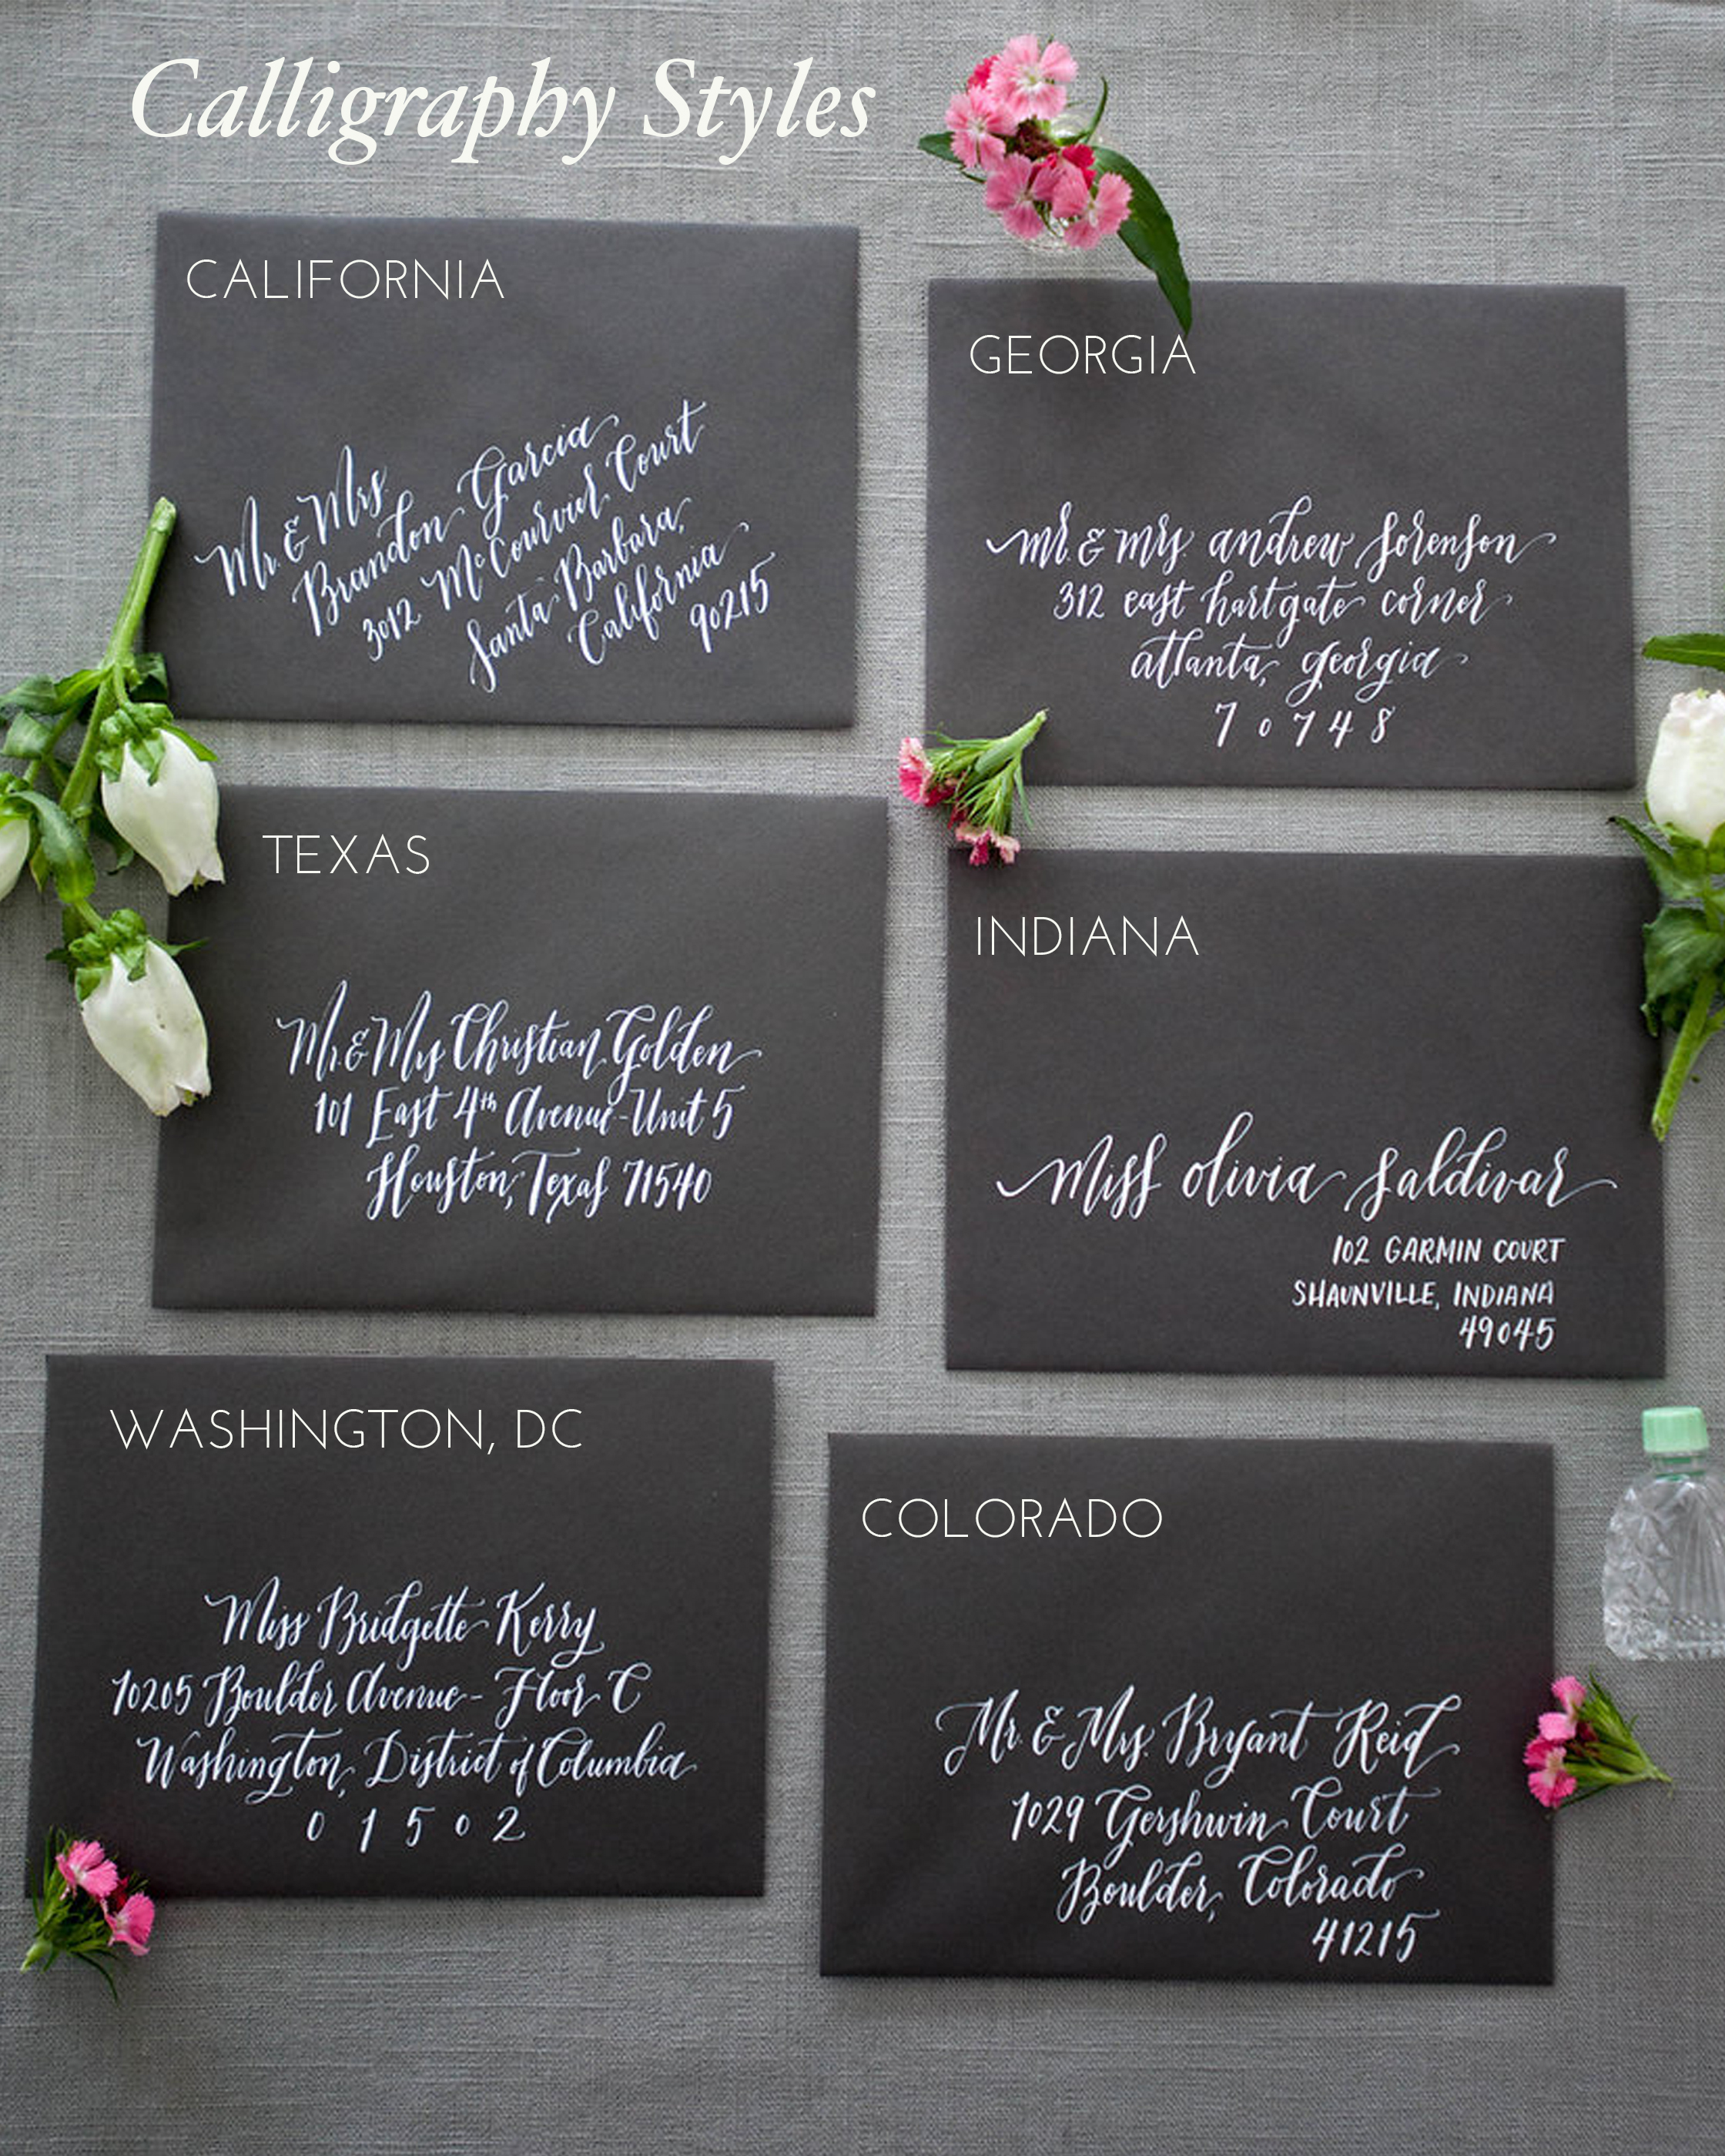 Calligraphy Styles
CALIFORNIA
Mr. & Mrs
Brandon Garcia
3012 McCourvier Court
Santa Barbara,
California
90215
GEORGIA
mr. & mrs andrew sorenson
312 east hartgate corner
atlanta, georgia
70748
TEXAS
Mr. & Mrs Christian Golden
101 East 4th Avenue-Unit 5
Houston, Texas 71540
INDIANA
miss olivia saldivar
102 GARMIN COURT
SHAUNVILLE, INDIANA
49045
WASHINGTON, DC
Miss Bridgette Kerry
10205 Boulder Avenue - Floor C
Washington, District of Columbia
01502
COLORADO
Mr. & Mrs. Bryant Reid
1029 Gershwin Court
Boulder, Colorado
41215